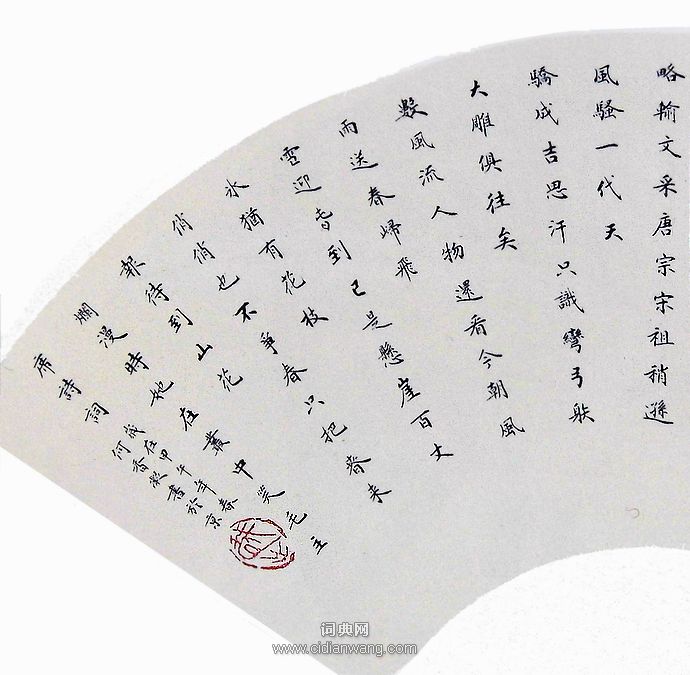 略輸文采唐宗宋祖稍遜
風騷一代天
驕成吉思汗只識彎弓䠶
大雕俱往矣
數風流人物還看今朝風
雨送春歸飛
雪迎春到已是懸崖百丈
冰猶有花枝
俏俏也不爭春只把春来
報待到山花
爛漫時她在叢中笑毛主
席詩詞
歲在甲午年春
何香淑書於京
词典网
www.cidianwang.com